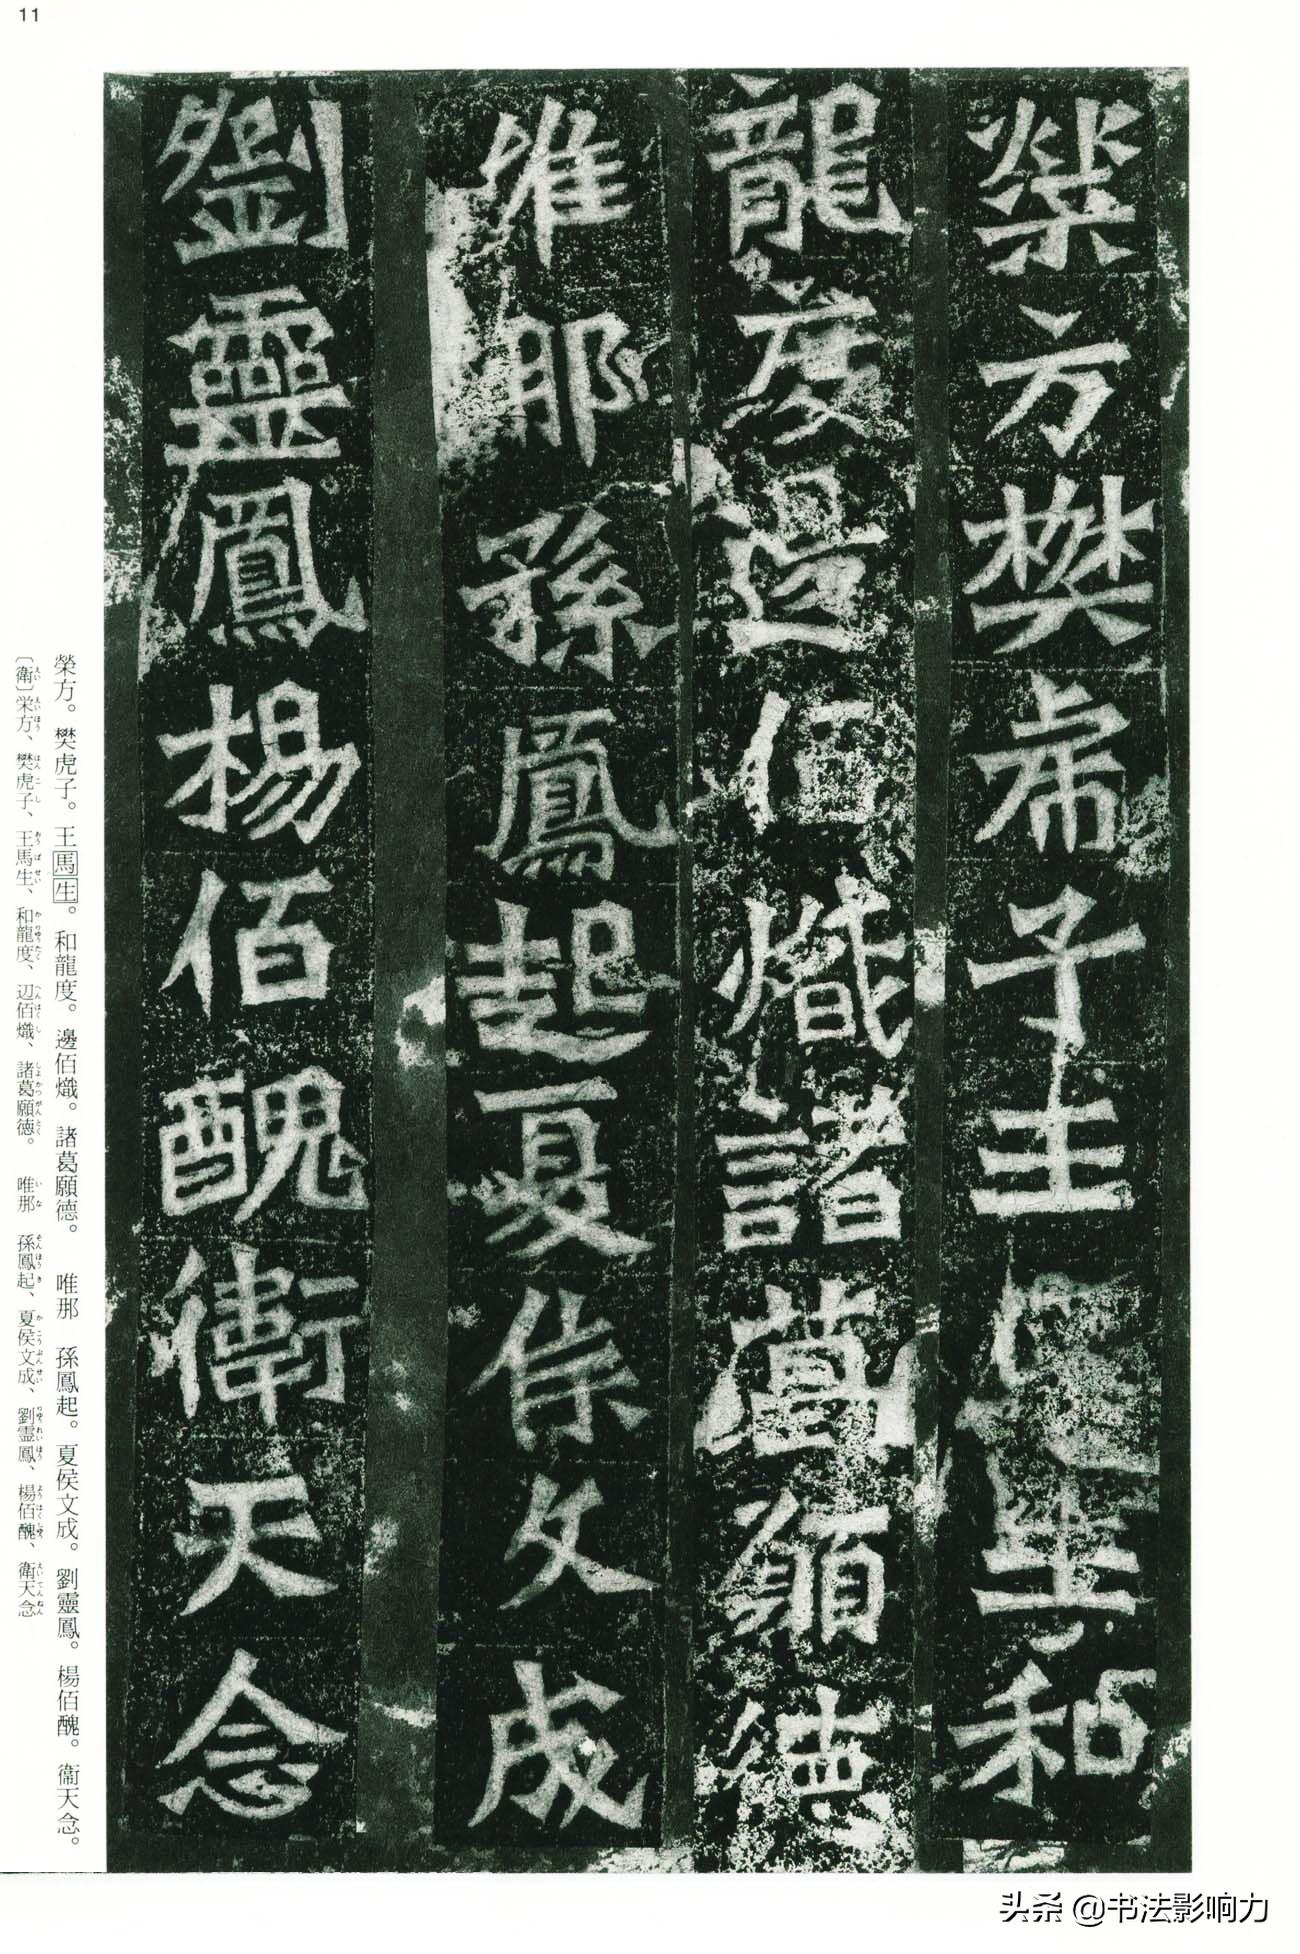 11
榮方樊虎子王馬生和
龍度邊佰熾諸葛願德
唯那孫鳳起夏侯文成
劉靈鳳楊佰醜衛天念
榮方。樊虎子。王馬生。和龍度。邊佰熾。諸葛願德。　唯那　孫鳳起。夏侯文成。劉靈鳳。楊佰醜。衞天念。
〔衛〕栄方、樊虎子、王馬生、和龍度、辺佰熾、諸葛願徳。　唯那　孫鳳起、夏侯文成、劉霊鳳、楊佰醜、衛天念
头条 @书法影响力